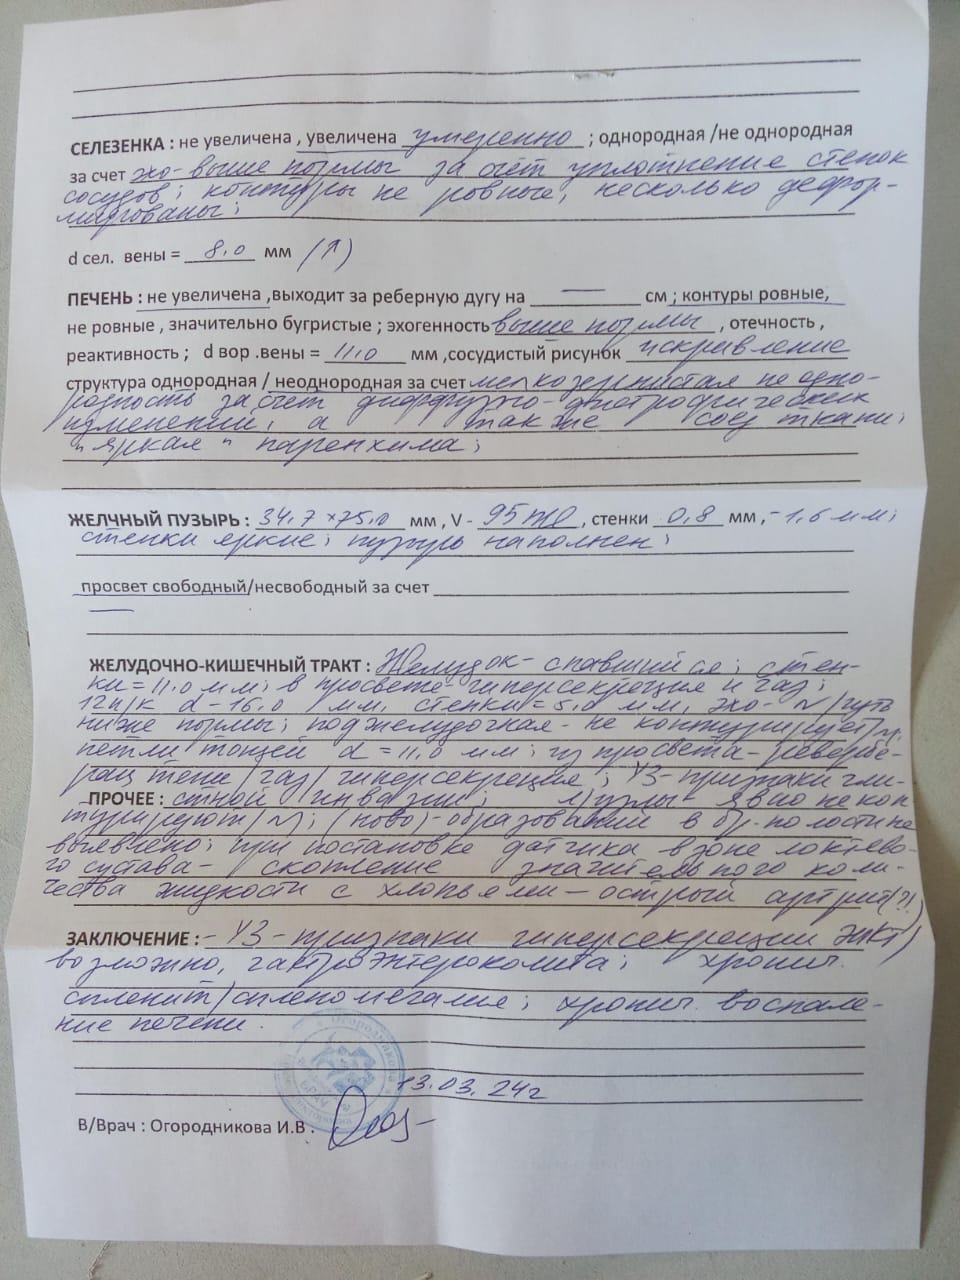 СЕЛЕЗЕНКА : не увеличена , увеличена умеренно ; однородная /не однородная
за счет эхо-выше нормы за счёт уплотнение стенок
сосудов; контуры не ровные, несколько дефор-
мированы;
d сел. вены = 8,0 мм (↑)
ПЕЧЕНЬ : не увеличена ,выходит за реберную дугу на — см ; контуры ровные,
не ровные , значительно бугристые ; эхогенность выше нормы , отечность ,
реактивность ; d вор .вены = 11,0 мм ,сосудистый рисунок искривление
структура однородная / неоднородная за счет мелкозернистая не одно-
родность за счет диффузно-дистрофических
изменений, а так же соед ткани;
"яркая" паренхима;
ЖЕЛЧНЫЙ ПУЗЫРЬ : 34,7 x 75,0 мм , V - 95 , стенки 0,8 мм ,- 1,6 мм;
стенки яркие; пузырь наполнен;
просвет свободный/несвободный за счет
—
ЖЕЛУДОЧНО-КИШЕЧНЫЙ ТРАКТ : Желудок- спавшийся; стен-
ки = 11,0 мм; в просвете гиперсекреция и газ;
12п/к d - 16,0 мм, стенки = 5,0 мм, эхо- N/чуть
ниже нормы; поджелудочная- не контурирует
петли тощей d = 11,0 мм; из просвета- ревербе-
рац тени/газ/гиперсекреция; УЗ-признаки гли-
ПРОЧЕЕ : стной инвазии; л/узлы- явно не кон
турируют/N; (ново)-образований в бр. полости не
выявлено; при постановке датчика в зоне локтево-
го сустава- скопление значительного коли-
чества жидкости с хлопьями- острый артрит(?)
ЗАКЛЮЧЕНИЕ : - УЗ-признаки гиперсекреции ЖКТ)
возможно, гастроэнтероколита; хронич.
спленит/спленомегалия; хронич. воспале-
ние печени.
13.03.24г
В/Врач : Огородникова И.В .